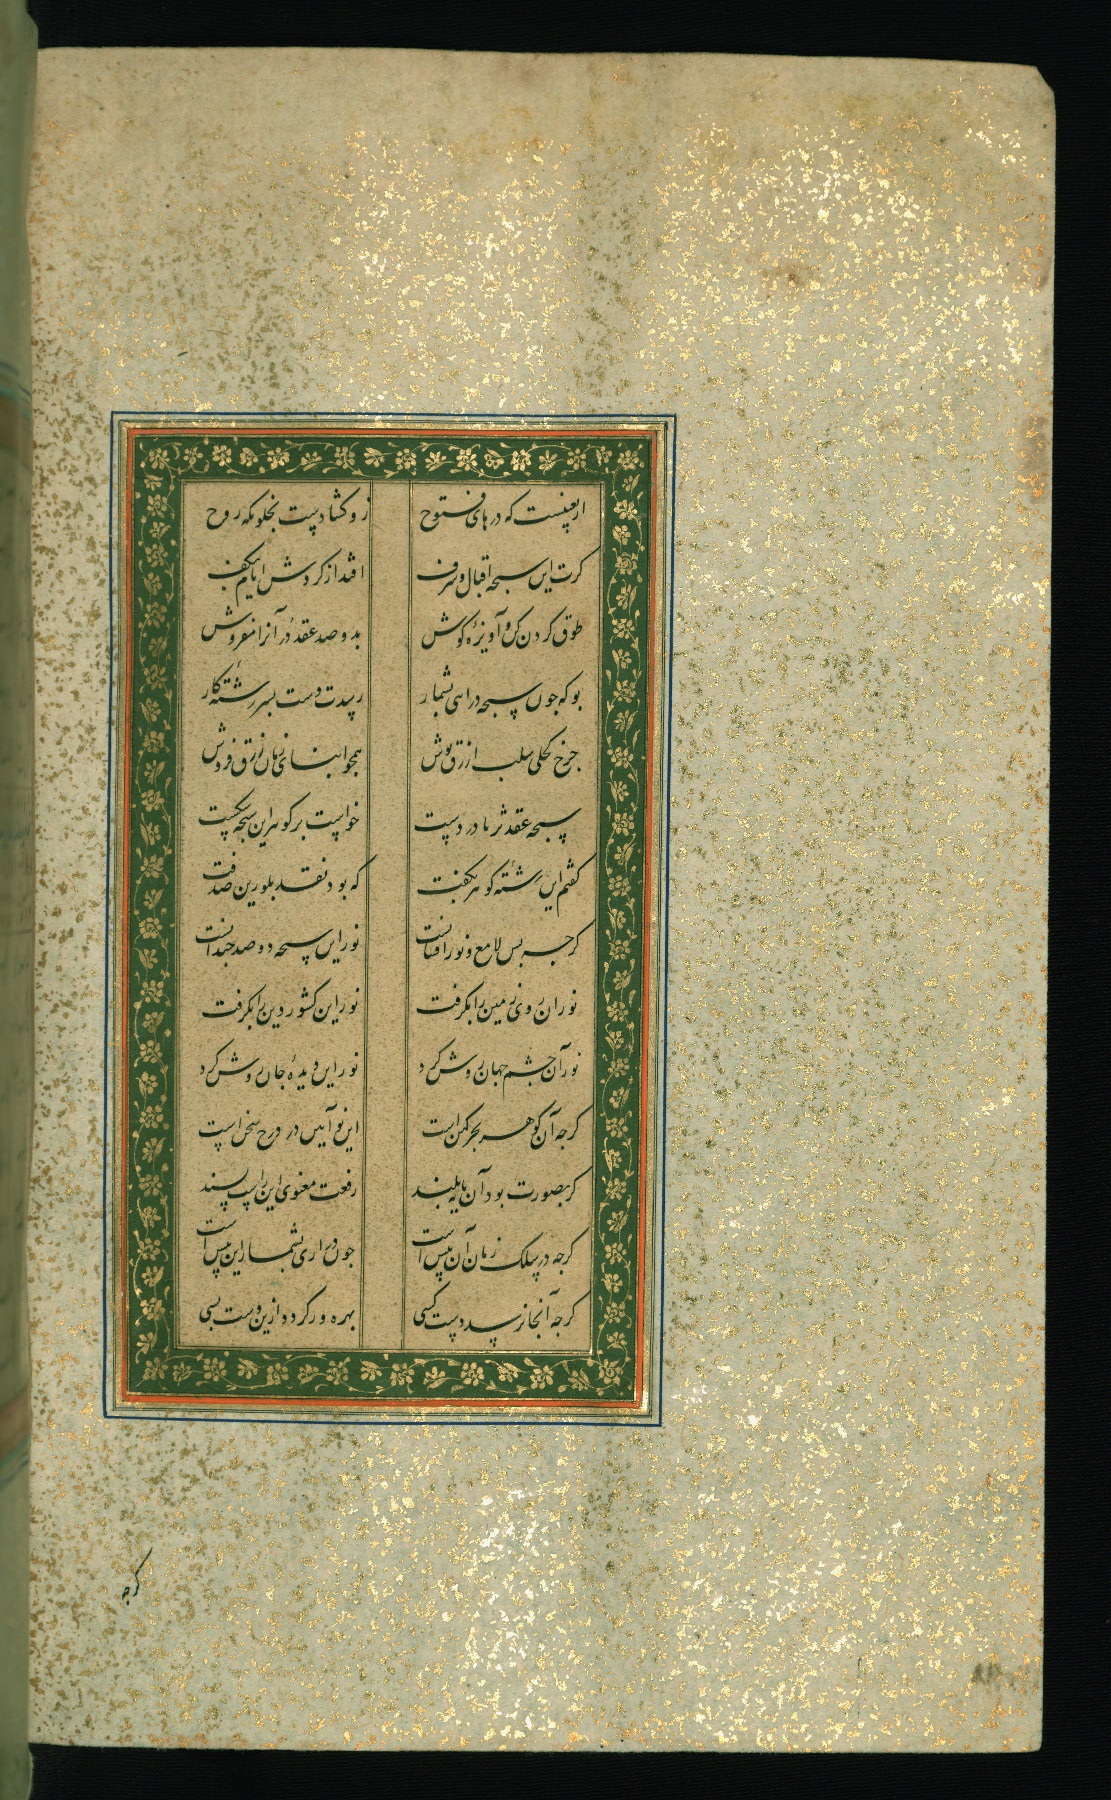 اربعینیست که درهای فتوح زو کشادست بخلوتکه روح
کرت این سبحه اقبال و شرف افتد از کردش ایام بکف
طوق کردن کن و آویزه کوش بدو صد عقد در آنرا مفروش
بو که چون سبحه درآیی بشمار رسدت دست بسر رشته کار
چرخ کحلی سلب ازرق پوش همچو ابنای زمان زرق فروش
سبحه عقد ثریا در دست خواست بر کوهر این سبحه شکست
کفتم این رشته کوهر بکفت که بود نقد بلورین صدفت
کرچه بس لامع و نورافشانست نور این سبحه دو صد چندانست
نور آن روی زمین را بکرفت نور این کشور دین را بکرفت
نور آن چشم جهان روشن کرد نور این دیده جان روشن کرد
کرچه آن کوهر بحر کهن است این نو آیین در درج سخن است
کر بصورت بود آن پایه بلند رفعت معنوی این را بپسند
کرچه در سلک زمان آن پیش است چون در آری بشمار این بیش است
کرچه آنجا نرسد دست کسی بهره ور کرده ازین دست بسی
کرچه